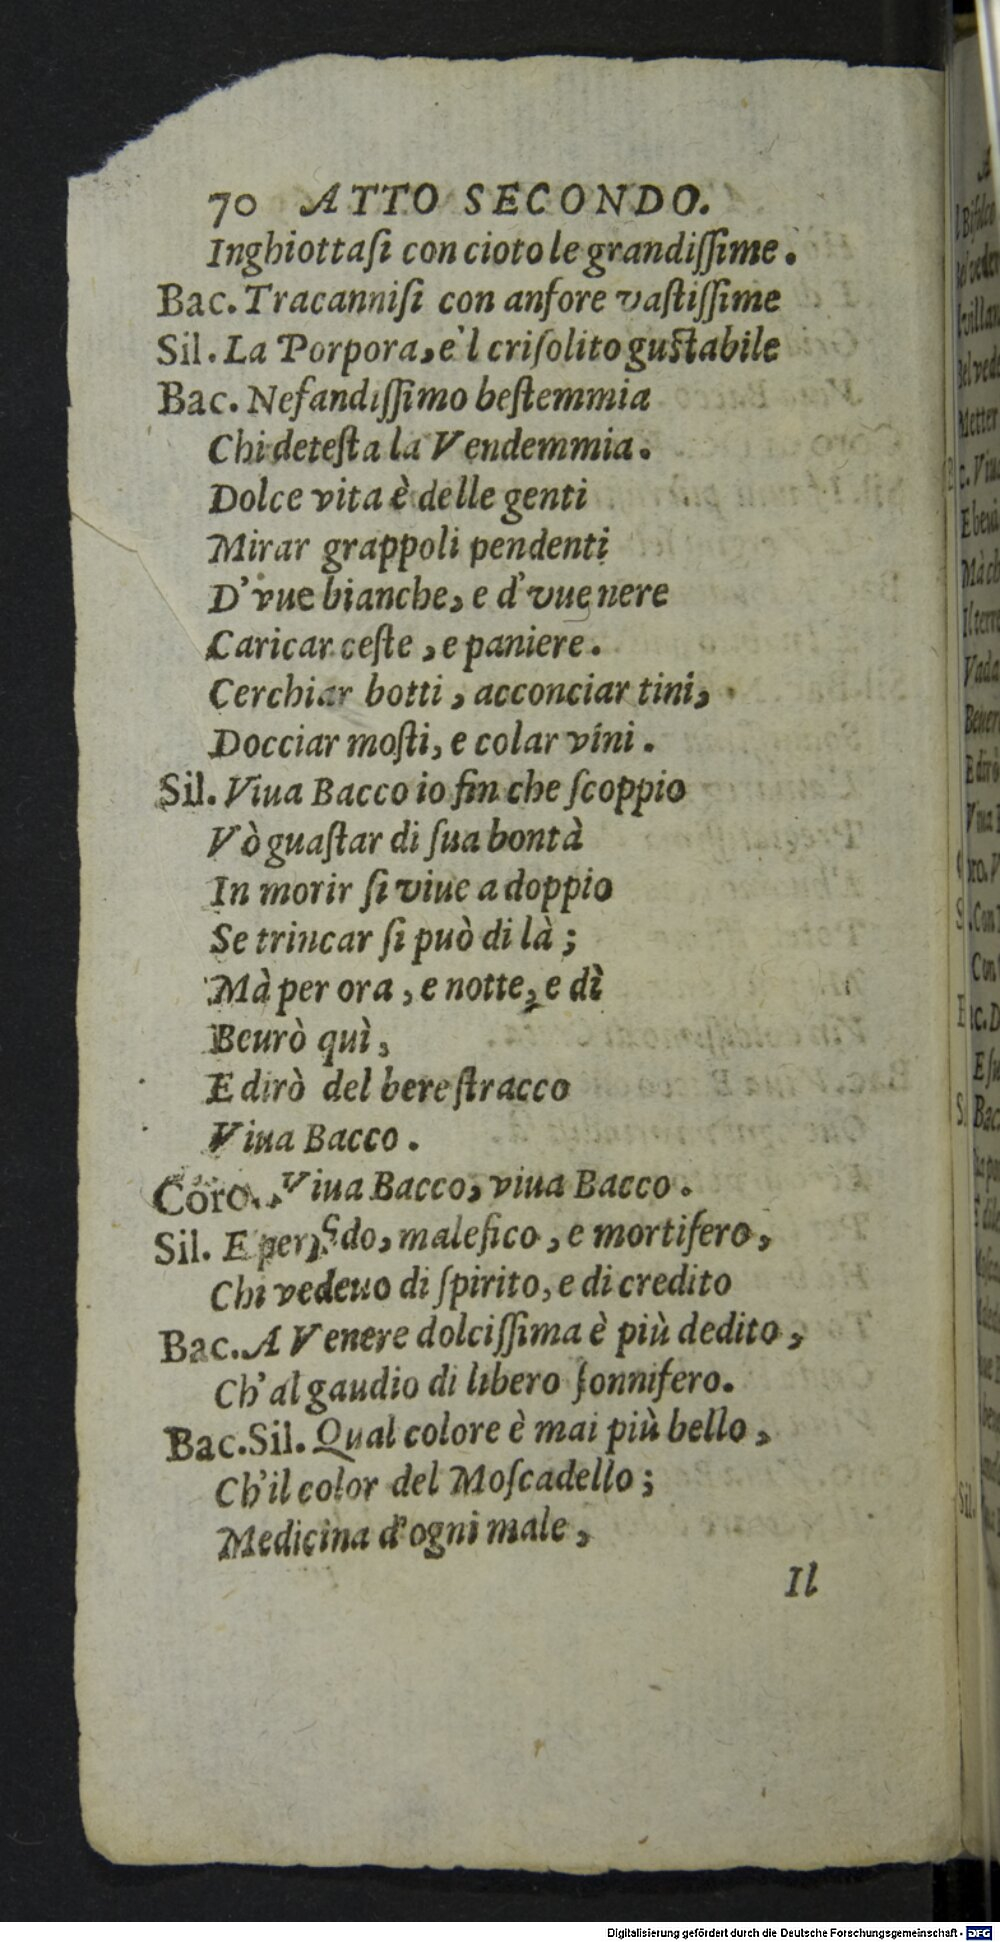 70 ATTO SECONDO.
Inghiottaſi con ciotole grandiſſime.
Bac. Tracanniſi con anfore vaſtiſſime
Sil. La Porpora, e'l criſolito guſtabile
Bac. Nefandiſſimo beſtemmia
Chi deteſta la Vendemmia.
Dolce vita è delle genti
Mirar grappoli pendenti
D'vue bianche, e d'vue nere
Caricar ceſte, e paniere.
Cerchiar botti, acconciar tini,
Docciar moſti, e colar vini.
Sil. Viua Bacco io fin che ſcoppio
Vò guaſtar di ſua bontà
In morir ſi viue a doppio
Se trincar ſi può di là;
Mà per ora, e notte, e dì
Beurò quì,
E dirò del bere ſtracco
Viua Bacco.
Coro. Viua Bacco, viua Bacco.
Sil. E perfido, malefico, e mortifero,
Chi vedeuo di ſpirito, e di credito
Bac. A Venere dolciſſima è più dedito,
Ch'al gaudio di libero ſonnifero.
Bac. Sil. Qual colore è mai più bello,
Ch'il color del Moſcadello;
Medicina d'ogni male,
Il
Digitalisierung gefördert durch die Deutsche Forschungsgemeinschaft - DFG